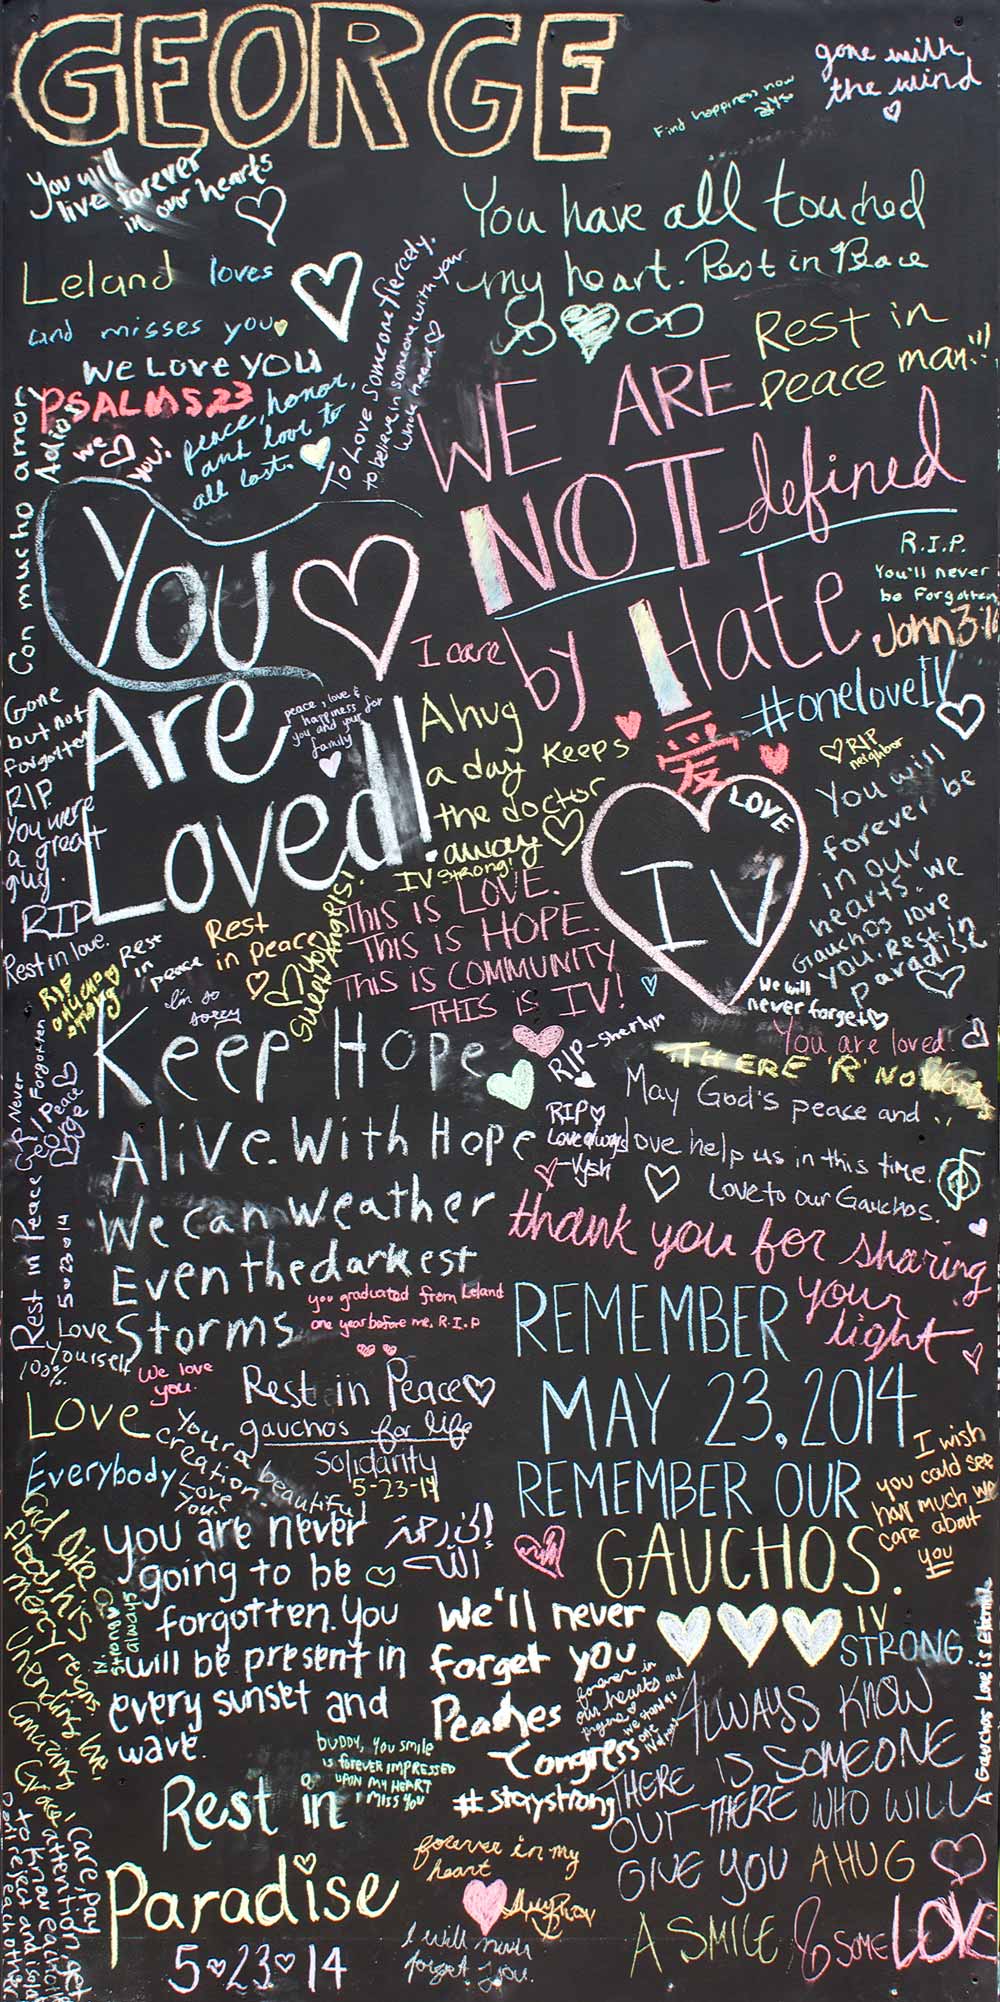 GEORGE
gone with
the wind
Find happiness now
You will
live forever
in our hearts
You have all touched
my heart. Rest in Peace
Leland loves
and misses you
WE LOVE YOU
PSALMS 23
we
you!
peace, honor,
and love to
all lost.
To Love Someone fiercely,
to believe in someone with your
whole heart
Rest in
peace man!!
Con mucho amor
Adios
WE ARE
NOT defined
by Hate
R.I.P.
You'll never
be Forgotten
John 3:16
#oneloveIV
You
Are
Loved!
I care
peace, love &
happiness for
you and your
family
Gone
but not
forgotten
RIP
You were
a great
guy.
RIP
Rest in love.
A hug
a day keeps
the doctor
away
IV strong!
爱
LOVE
IV
RIP
neighbor
You will
forever be
in our
hearts. We
Gauchos love
you. Rest in
paradise
We will
never forget
THIS IS LOVE.
THIS IS HOPE.
THIS IS COMMUNITY
THIS IS IV!
Rest
in peace
Rest
in
peace
Sweet Angels!
I'm so
sorry
Keep Hope
Alive. With Hope
We can weather
Even the darkest
Storms
RIP - Sherlyn
You are loved!
THERE 'R' NO
RIP
Love always
May God's peace and
love help us in this time.
Love to our Gauchos.
thank you for sharing
your
light
Rest in Peace
5 23 14
you graduated from Leland
one year before me. R.I.P
Love
Yourself
100%.
We love
you.
Rest in Peace
gauchos for life
Solidarity
5-23-14
REMEMBER
MAY 23, 2014
REMEMBER OUR
GAUCHOS.
IV
STRONG
I wish
you could see
how much we
care about
you
LOVE
Everybody
Your a beautiful
creation.
Love
You.
you are never
going to be
forgotten. You
will be present in
every sunset and
wave.
We'll never
forget you
Peaches
Congress
#staystrong
IV
Strong
always
buddy, you smile
is forever impressed
upon my heart
I miss you
Rest in
Paradise
5 23 14
forever in my
heart
I will never
forget you.
ALWAYS KNOW
THERE IS SOMEONE
OUT THERE WHO WILL
GIVE YOU A HUG
A SMILE & SOME LOVE